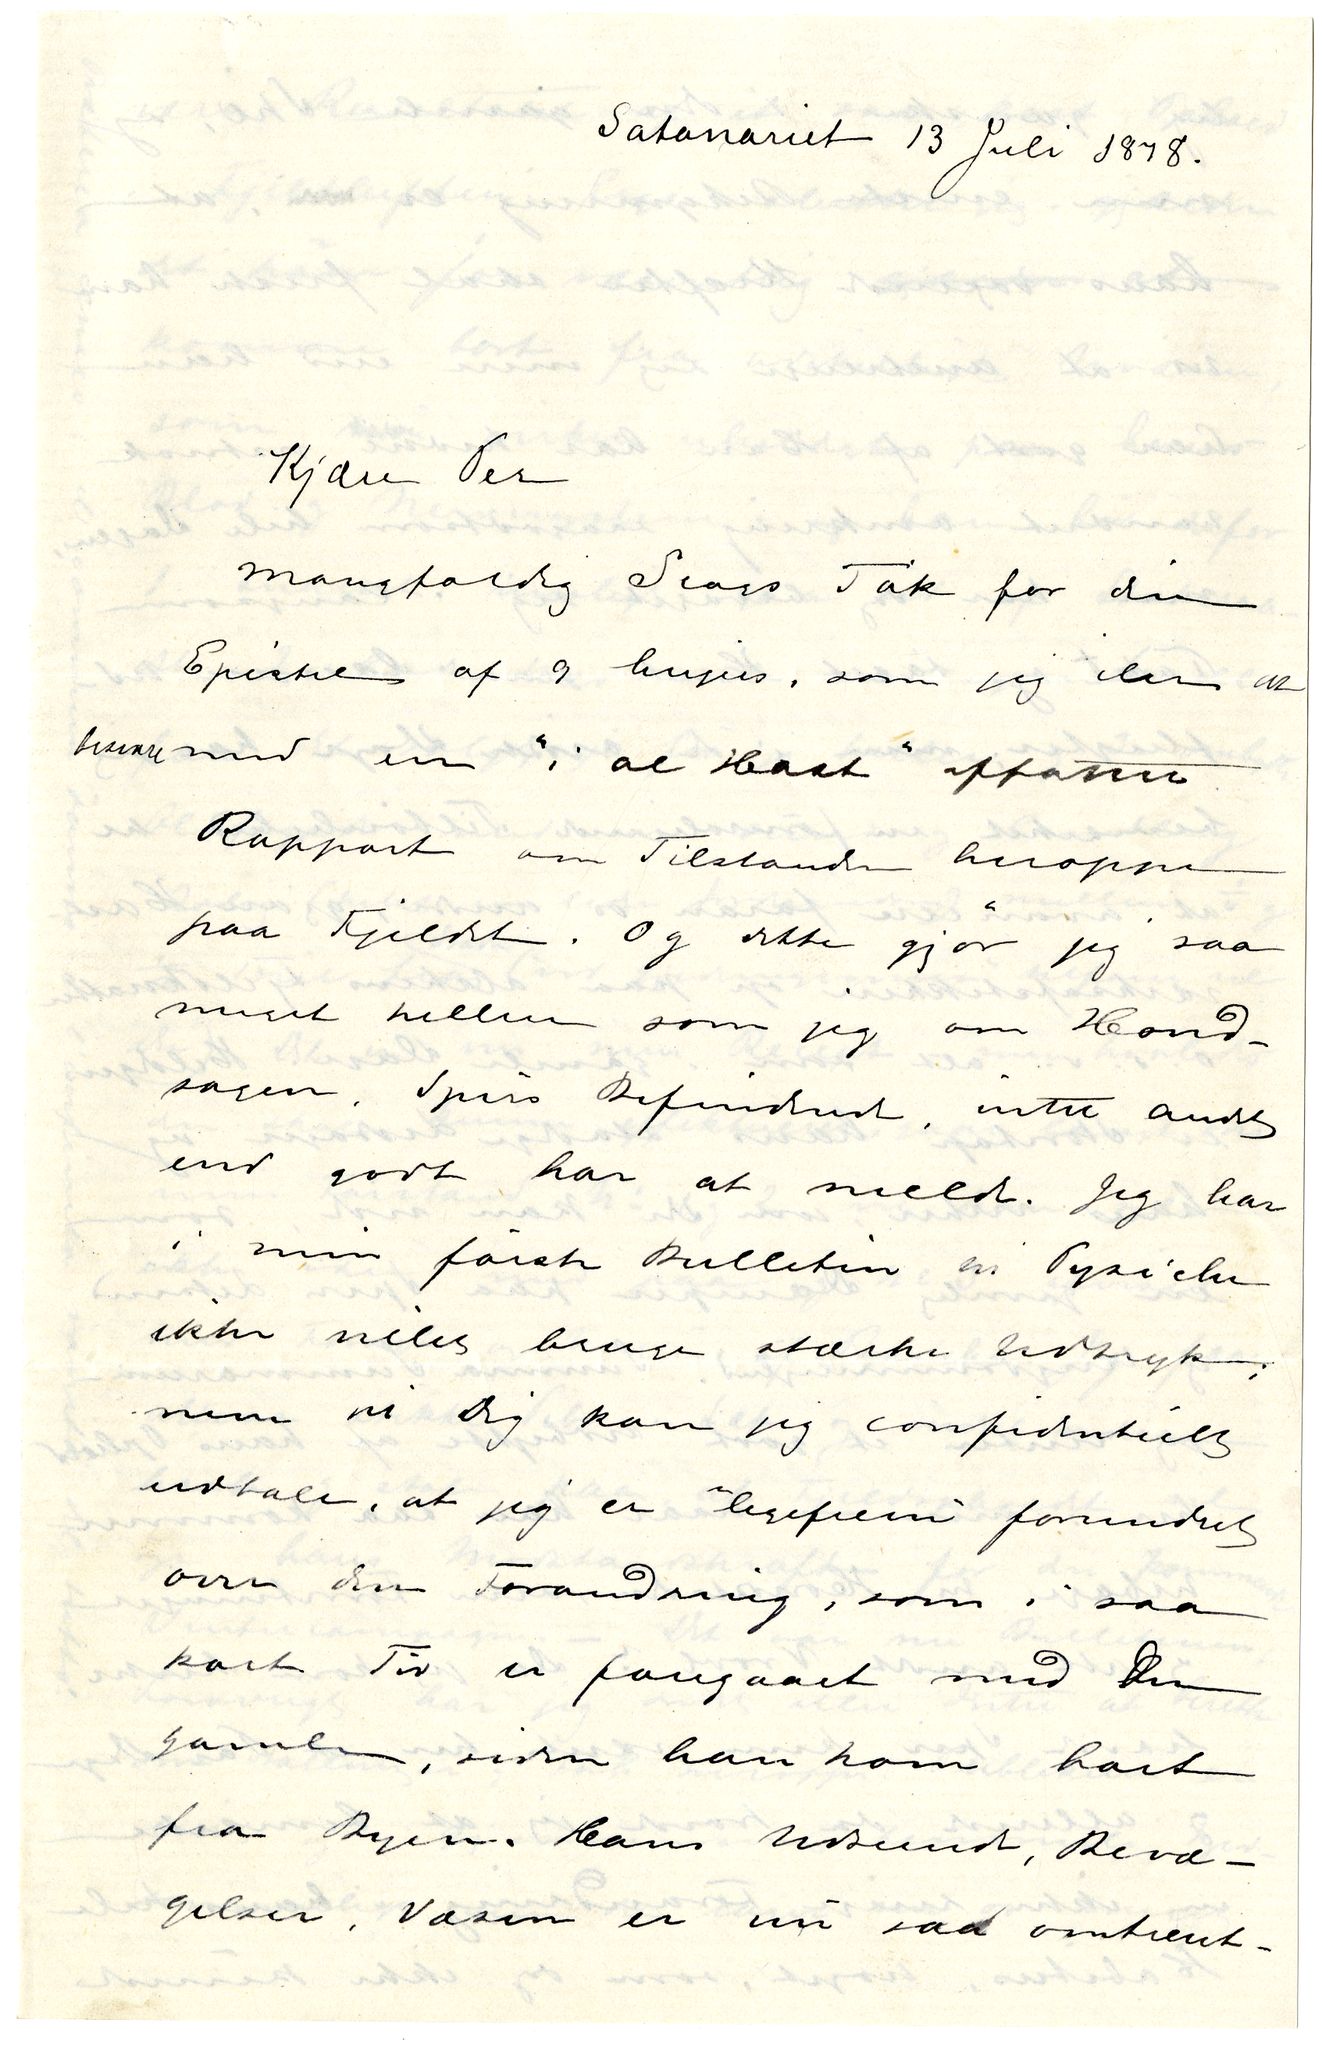 Satanariet 13 Juli 1878.
Kjære Per
mangfoldig Slags Tak for din
Epistel af 9 hujus, som jeg iler at
besvare med en "i al Hast" affattet
Rapport om Tilstanden heroppe
paa Fjeldet. Og dette gjør jeg saa
meget hellere som jeg om Hoved-
sagen, Spises Befindende, intet andet
end godt har at melde. Jeg har
i min første Bulletin til
ikke villet bruge stærke Udtryk;
men til Dig kan jeg confidentielt
udtale, at jeg er "ligefrem" forundret
over den Forandring, som i saa
kort Tid er foregaaet med Den
gamle, siden han kom bort
fra Byen. Hans Udseende, Bevæ-
gelser, Væsen er nu saa omtrent-